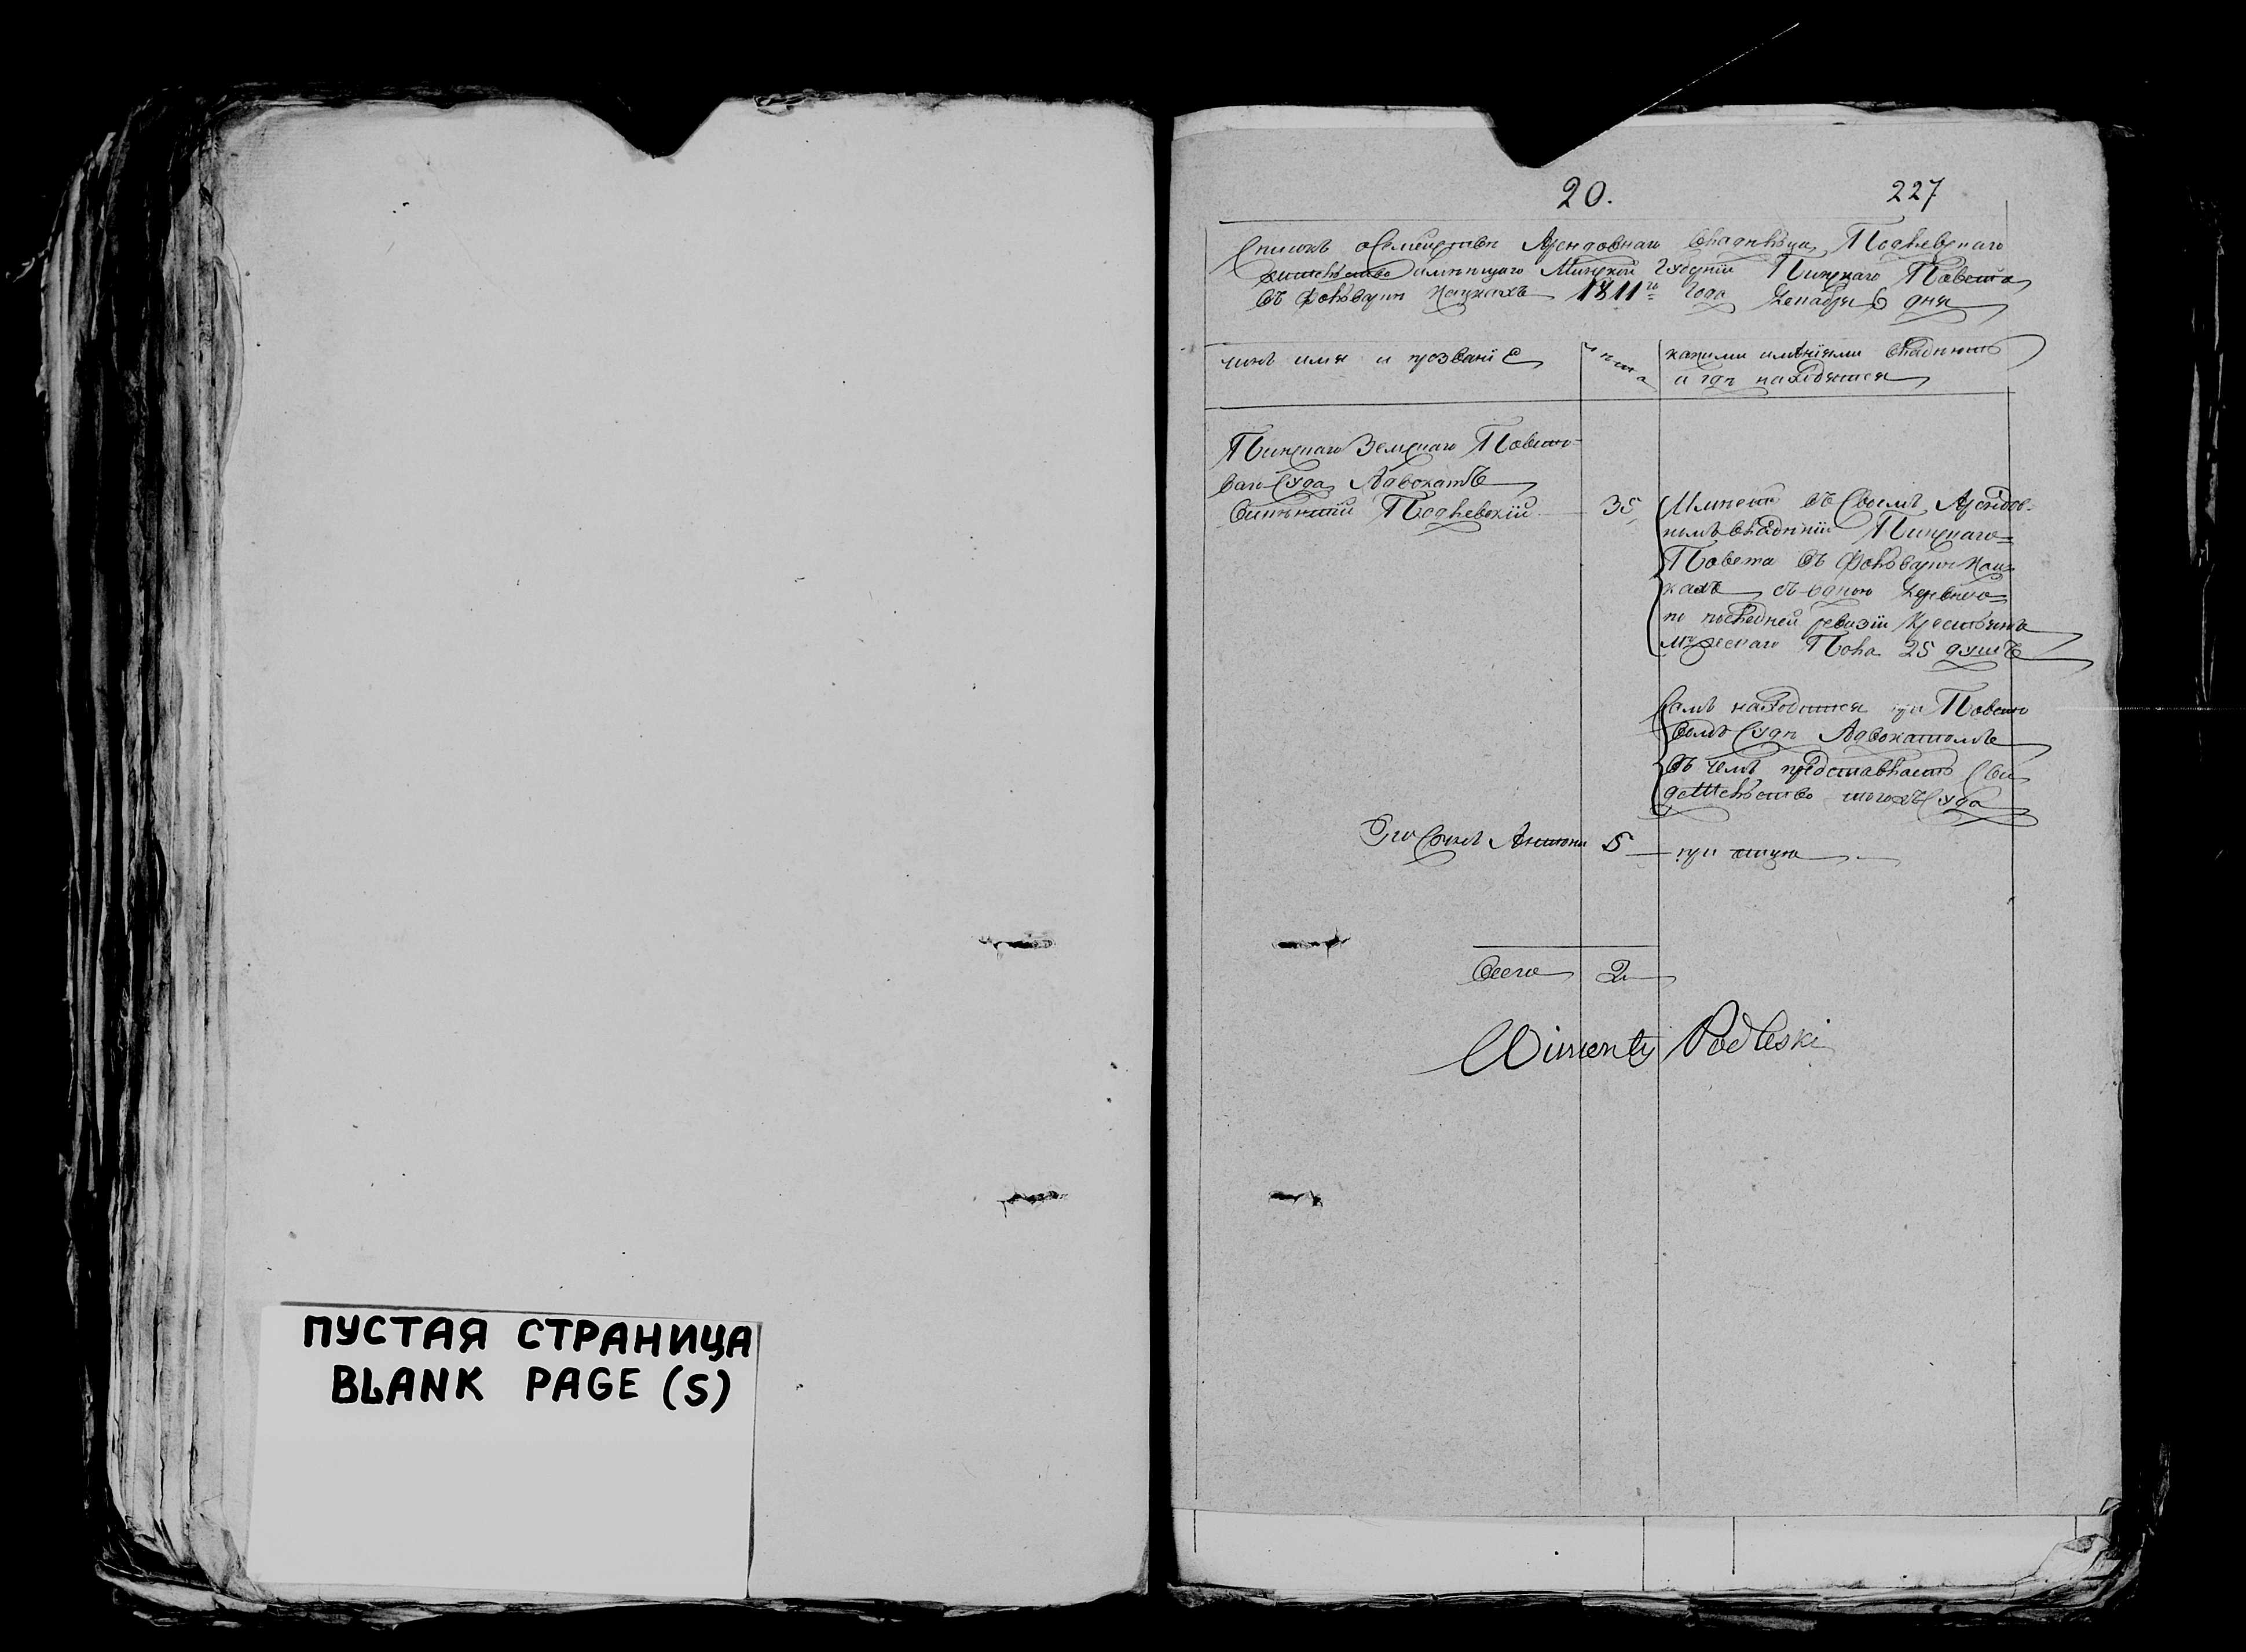 ПУСТАЯ СТРАНИЦА
BLANK PAGE (S)
20. 227
Списокъ о Семействѣ Арендовнаго владѣльца Подлевскаго
жительство имѣющаго Минской Губерніи Пинскаго Повета
въ фольварки 1811го Года Декабря 6 дня
чинъ имя и прозваніе
лѣта
какими имѣніями владѣютъ
и гдѣ находятся
Пинскаго Земскаго Повето-
ваго Суда Адвокатъ
Викентій Подлевскій 35
Имѣетъ въ Своемъ Арендов-
номъ владѣніи Пинскаго
Повета въ фольварки
съ одною деревнею
по последней ревизіи Крестьянъ
Мужескаго Пола 25 душъ
Самъ находится при Повето
вомъ Суде Адвокатомъ
въ чемъ представляетъ Сви
детельство тогожъ Суда
Его Сынъ Антони 5 при отцу
Всего 2
Wincenty Podleski